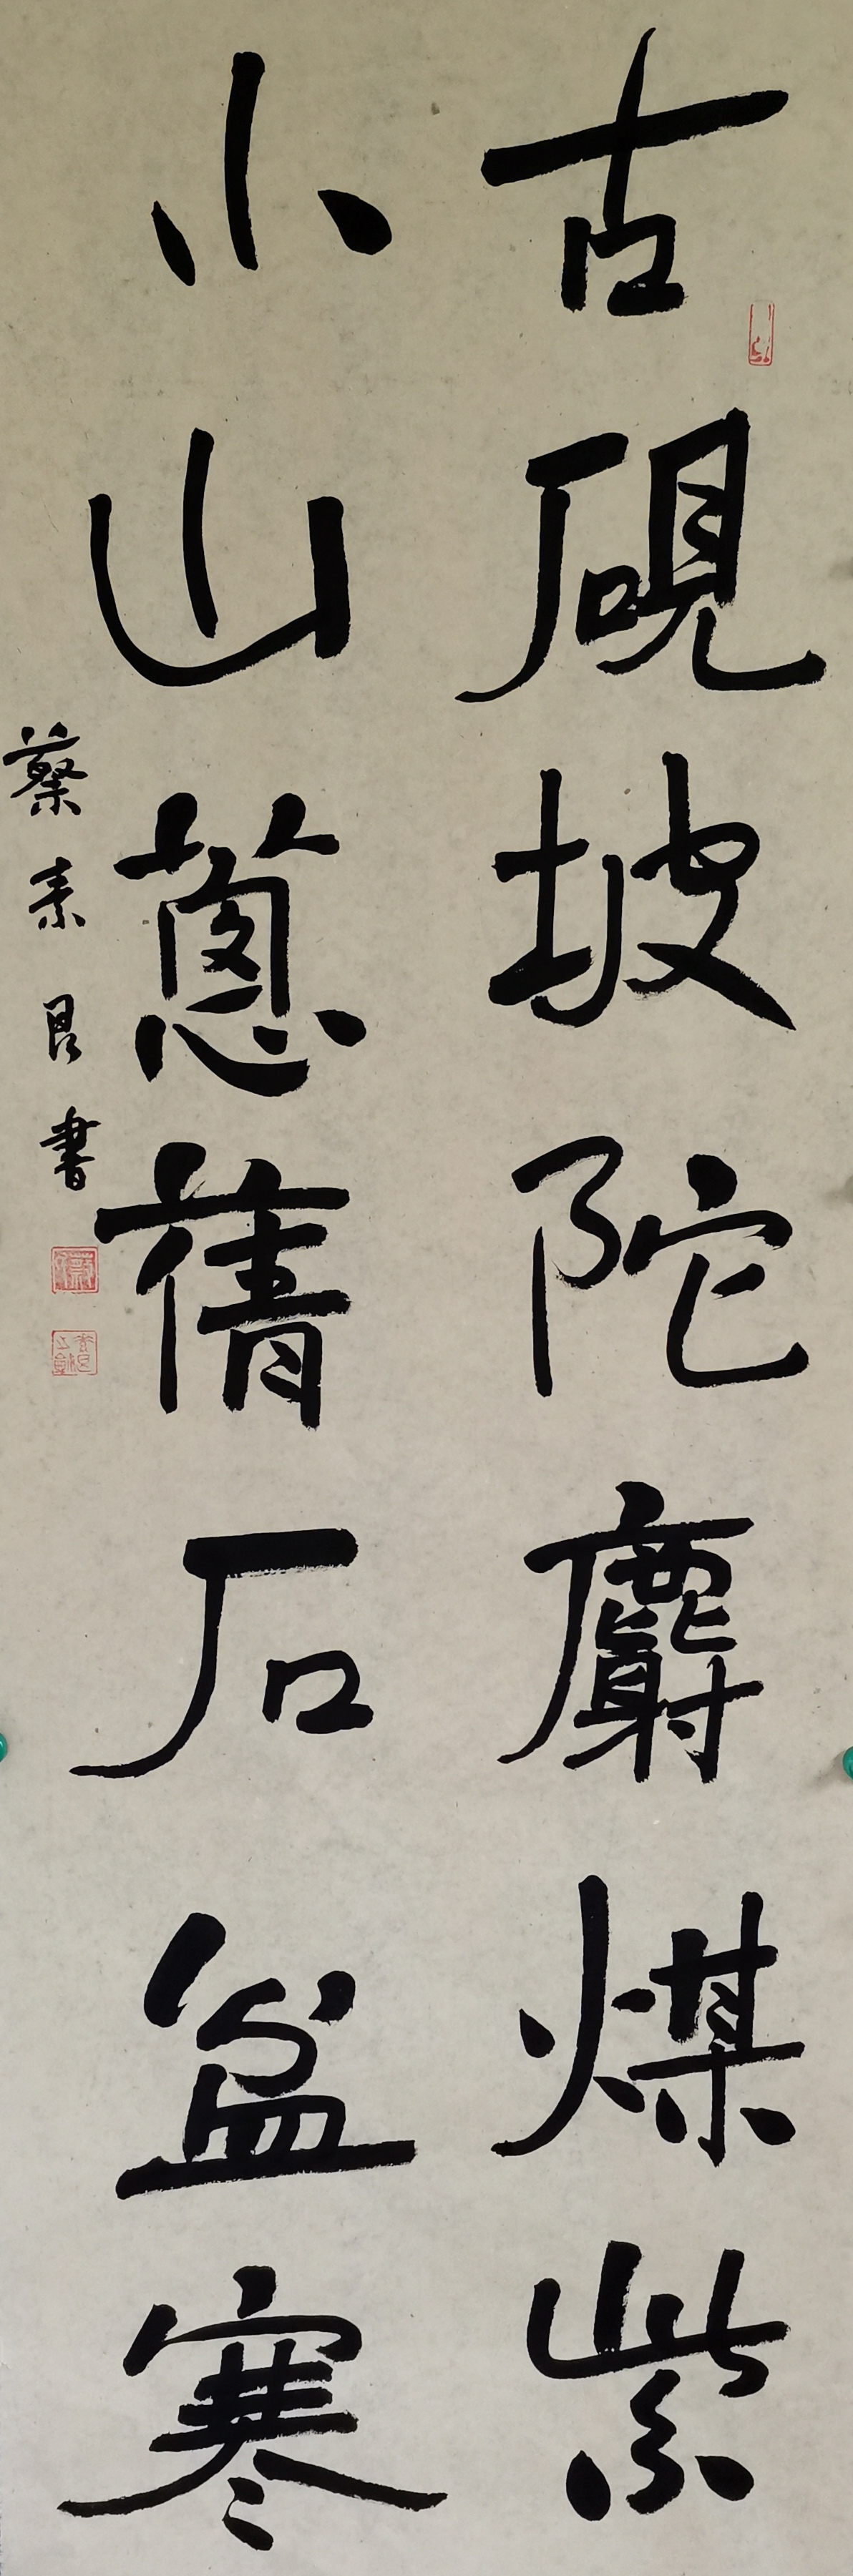 古硯坡陀麝煤紫
小山蔥蒨石盆寒
蔡素良書